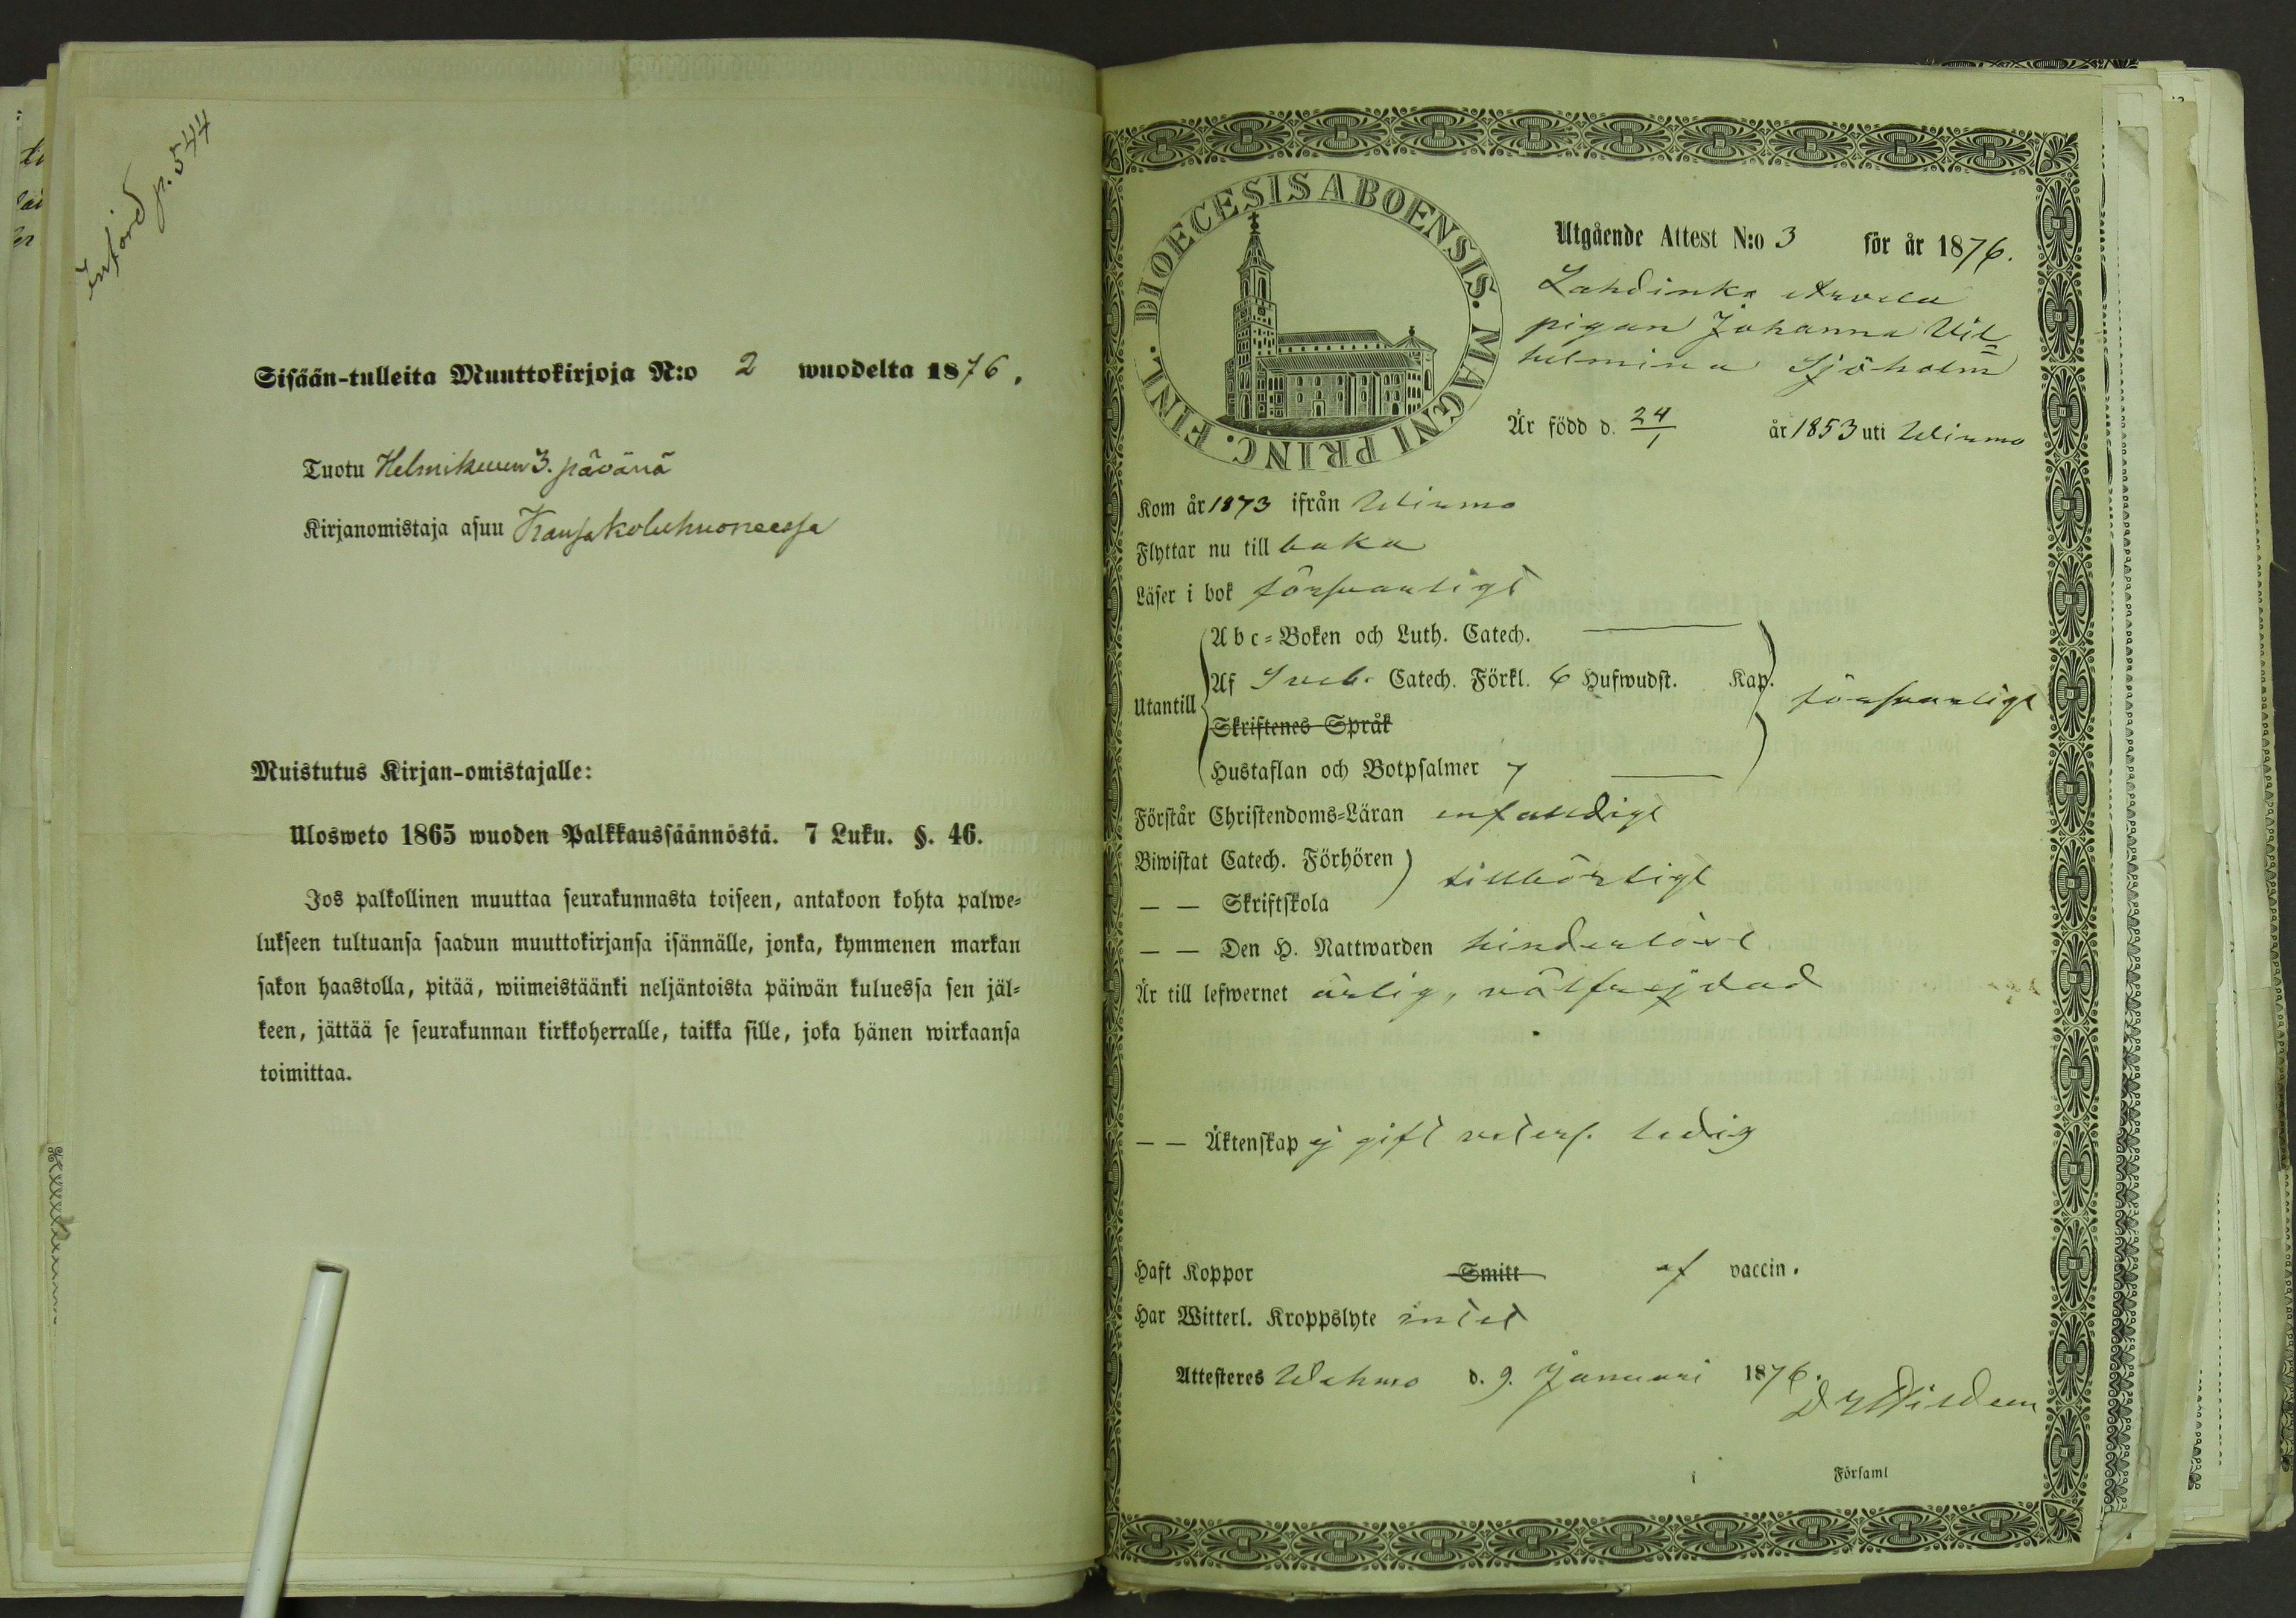 Införd p. 544
Sisään-tulleita Muuttokirjoja N:o 2 wuodelta 1876.
Tuotu Helmikuun 3. pävänä
Kirjanomistaja asuu Kansakoluhuoneessa
Muistutus Kirjan-omistajalle:
Ulosweto 1865 wuoden Palkkaussäännöstä. 7 Luku. §. 46.
Jos palkollinen muuttaa seurakunnasta toiseen, antakoon kohta palwe=
lukseen tultuansa saadun muuttokirjansa isännälle, jonka, kymmenen markan
sakon haastolla, pitää, wiimeistäänki neljäntoista päiwän kuluessa sen jäl=
keen, jättää se seurakunnan kirkkoherralle, taikka sille, joka hänen wirkaansa
toimittaa.
DIOECESIS ABOENSIS. MAGNI PRINC. FINL.
Utgående Attest N:o 3 för år 1876.
Lahdinko Arvela
pigan Johanna Vil=
helmina Sjöholm
Är född d. 24/1 år 1853 uti Wirmo
Kom år 1873 ifrån Wirmo
Flyttar nu till baka
Läser i bok försvarligt
Utantill
Abc=Boken och Luth. Catech.
Af Sveb. Catech. Förkl. 6 Hufwudst. Kap. försvarligt
Skriftenes Språk
Hustaflan och Botpsalmer 7
Förstår Christendoms=Läran enfaldigt
Biwistat Catech. Förhören tillbörligt
— — Skriftskola
— — Den H. Nattwarden hinderlöst
Är till lefwernet ärlig, välfrejdad
— — Äktenskap ej gift ledig
Haft Koppor Smitt af vaccin.
Har Witterl. Kroppslyte intet
Attesteres Wehmo d. 9. Januari 1876.
i Församl